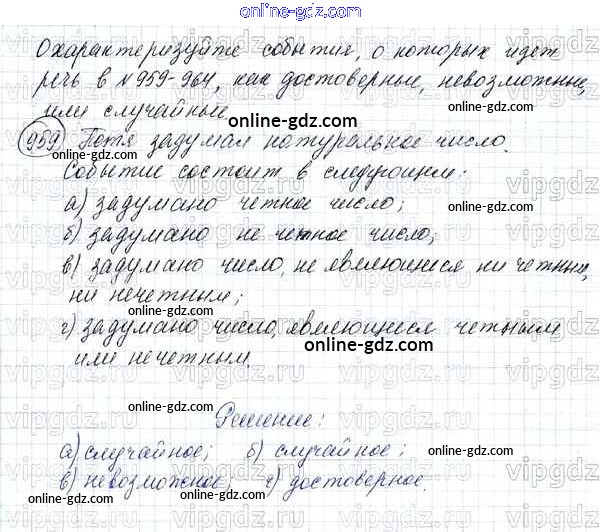 online-gdz.com
Охарактеризуйте события, о которых идет
речь в №959-964, как достоверные, невозможные,
или случайные
online-gdz.com
959 Петя задумал натуральное число.
online-gdz.com
Событие состоит в следующем:
а) задумано четное число; online-gdz.com
б) задумано не четное число;
online-gdz.com
в) задумано число, не являющиеся ни четным,
ни нечетным; online-gdz.com
г) задумано число, являющиеся четным
или нечетным. online-gdz.com
online-gdz.com Решение:
online-gdz.com
а) случайное; б) случайное;
в) невозможное; г) достоверное.
online-gdz.com online-gdz.com
vipgdz.ru vipgdz.ru vipgdz.ru